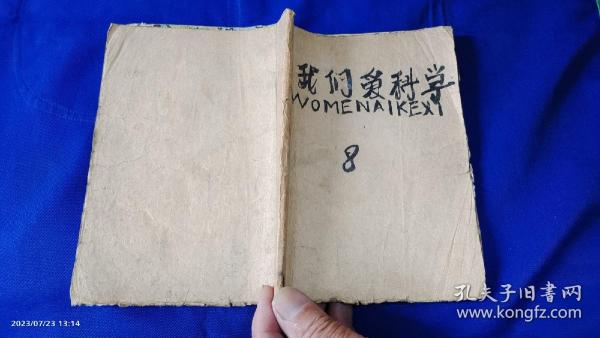 我们爱科学
WOMENAIKEXI
8
2023/07/23 13:14
孔夫子旧书网
www.kongfz.com